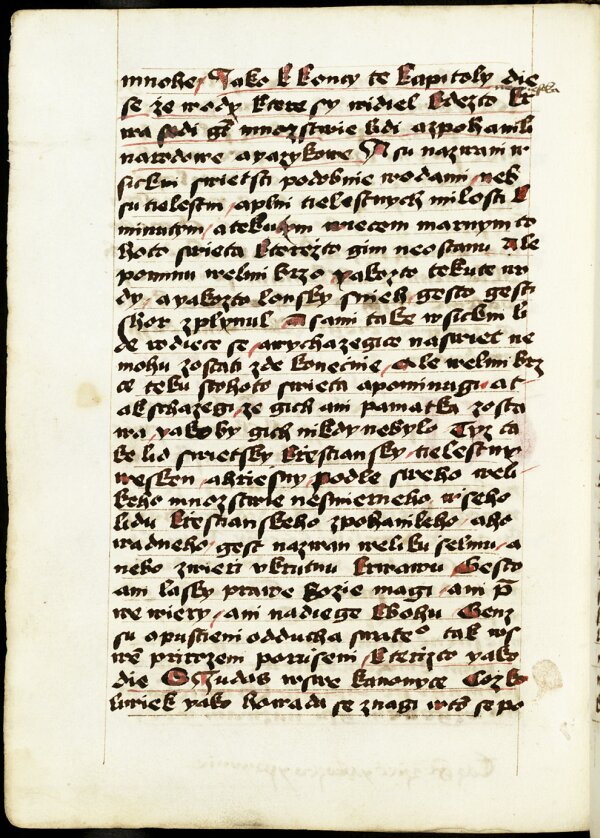 mnohe Jako k koncy te kapitoly die
se ze wody ktere sy widiel kdezto
wa sedi gt mnozstwie lidi a zpohanili
narodowe a yazykowe A su nazwani w
sickni swietsti podobnie wodami neb
su tielestni aplni tielestnych milosti k
minutym a tekutym wiecem marnym to
hoto swieta kterezto gim neostanu Ale
pominu welmi brzo yakozto tekute wo
dy a yakozto lonsky snieh gesto gest
shor zplynul A sami take wsickni li
de rodiece se a wychazegice naswiet ne
mohu zostati zde konecznie Ale welmi brz
ce teku stohoto swieta a pominugi a t
ak schazegi ze gich ani pamatka zosta
wa yako by gich nikdy nebylo Tyz ta
ke lid swietsky krestiansky tielestny
wesken a hriesny podle sweho weli
keho mnozstwie nesmierneho wseho
lidu krestianskeho zpohanileho a ho
wadneho gest nazwan weliku selmu a
nebo zwieri vkrutnu krwawu Gesto
ani lasky prawe bozie magi ani p̄
we wiery ani nadiege kbohu Genz
su apustieni odducha swateº tak ws
wē prirozeni poruseni kterizto yako
die S Judas wswe kanonyce Cozko
liwiek yako howada se znagi wts se po